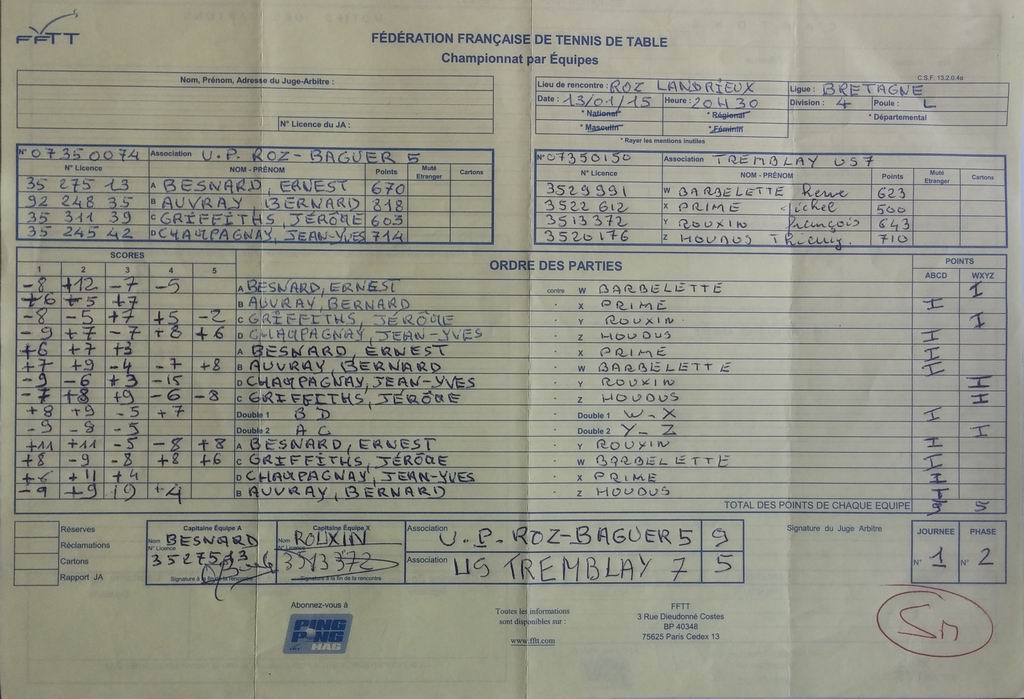 FFTT
FÉDÉRATION FRANÇAISE DE TENNIS DE TABLE
Championnat par Équipes
C.S.F. 13.2.0.4a
Nom, Prénom, Adresse du Juge-Arbitre :
N° Licence du JA :
Lieu de rencontre : ROZ LANDRIEUX Ligue : BRETAGNE
Date : 13/01/15 Heure : 20H30 Division : 4 Poule : L
* National * Régional * Départemental
* Masculin * Féminin
* Rayer les mentions inutiles
N° 07350074 Association U.P. ROZ-BAGUER 5
N° Licence NOM - PRÉNOM Points Muté Etranger Cartons
35 275 13 A BESNARD, ERNEST 670
92 248 35 B AUVRAY, BERNARD 818
35 311 39 C GRIFFITHS, JÉRÔME 603
35 245 42 D CHAMPAGNAY, JEAN-YVES 714
N° 07350150 Association TREMBLAY US7
N° Licence NOM - PRÉNOM Points Muté Etranger Cartons
3529991 W BARBELETTE Herve 623
3522612 X PRIME Michel 500
3513372 Y ROUXIN François 643
3520176 Z HOUDUS Thierry 710
SCORES ORDRE DES PARTIES POINTS
1 2 3 4 5 ABCD WXYZ
-8 +12 -7 -5 A BESNARD, ERNEST contre W BARBELETTE I
+6 +5 +7 B AUVRAY, BERNARD - X PRIME I
-8 -5 +7 +5 -2 C GRIFFITHS, JÉRÔME - Y ROUXIN I
-9 +7 -7 +8 +6 D CHAMPAGNAY, JEAN-YVES - Z HOUDUS I
+6 +7 +3 A BESNARD, ERNEST - X PRIME I
+7 +9 -4 -7 +8 B AUVRAY, BERNARD - W BARBELETTE I
-9 -6 +3 -15 D CHAMPAGNAY, JEAN-YVES - Y ROUXIN I
-7 +8 +9 -6 -8 C GRIFFITHS, JÉRÔME - Z HOUDUS I
+8 +9 -5 +7 Double 1 B D - Double 1 W-X I
-9 -8 -5 Double 2 A C - Double 2 Y-Z I
+11 +11 -5 -8 +8 A BESNARD, ERNEST - Y ROUXIN I
+8 -9 -8 +8 +6 C GRIFFITHS, JÉRÔME - W BARBELETTE I
+6 +11 +4 D CHAMPAGNAY, JEAN-YVES - X PRIME I
-9 +9 19 +4 B AUVRAY, BERNARD - Z HOUDUS I
TOTAL DES POINTS DE CHAQUE EQUIPE 9 5
Réserves
Réclamations
Cartons
Rapport JA
Capitaine Équipe A
Nom BESNARD
N° Licence
3527513
Signature à la fin de la rencontre
Capitaine Équipe X
Nom ROUXIN
N° Licence
3513372
Signature à la fin de la rencontre
Association U.P. ROZ-BAGUER 5 9
Association US TREMBLAY 7 5
Signature du Juge Arbitre
JOURNEE PHASE
N° 1 N° 2
Abonnez-vous à
PING PONG MAG
Toutes les informations
sont disponibles sur :
www.fftt.com
FFTT
3 Rue Dieudonné Costes
BP 40348
75625 Paris Cedex 13